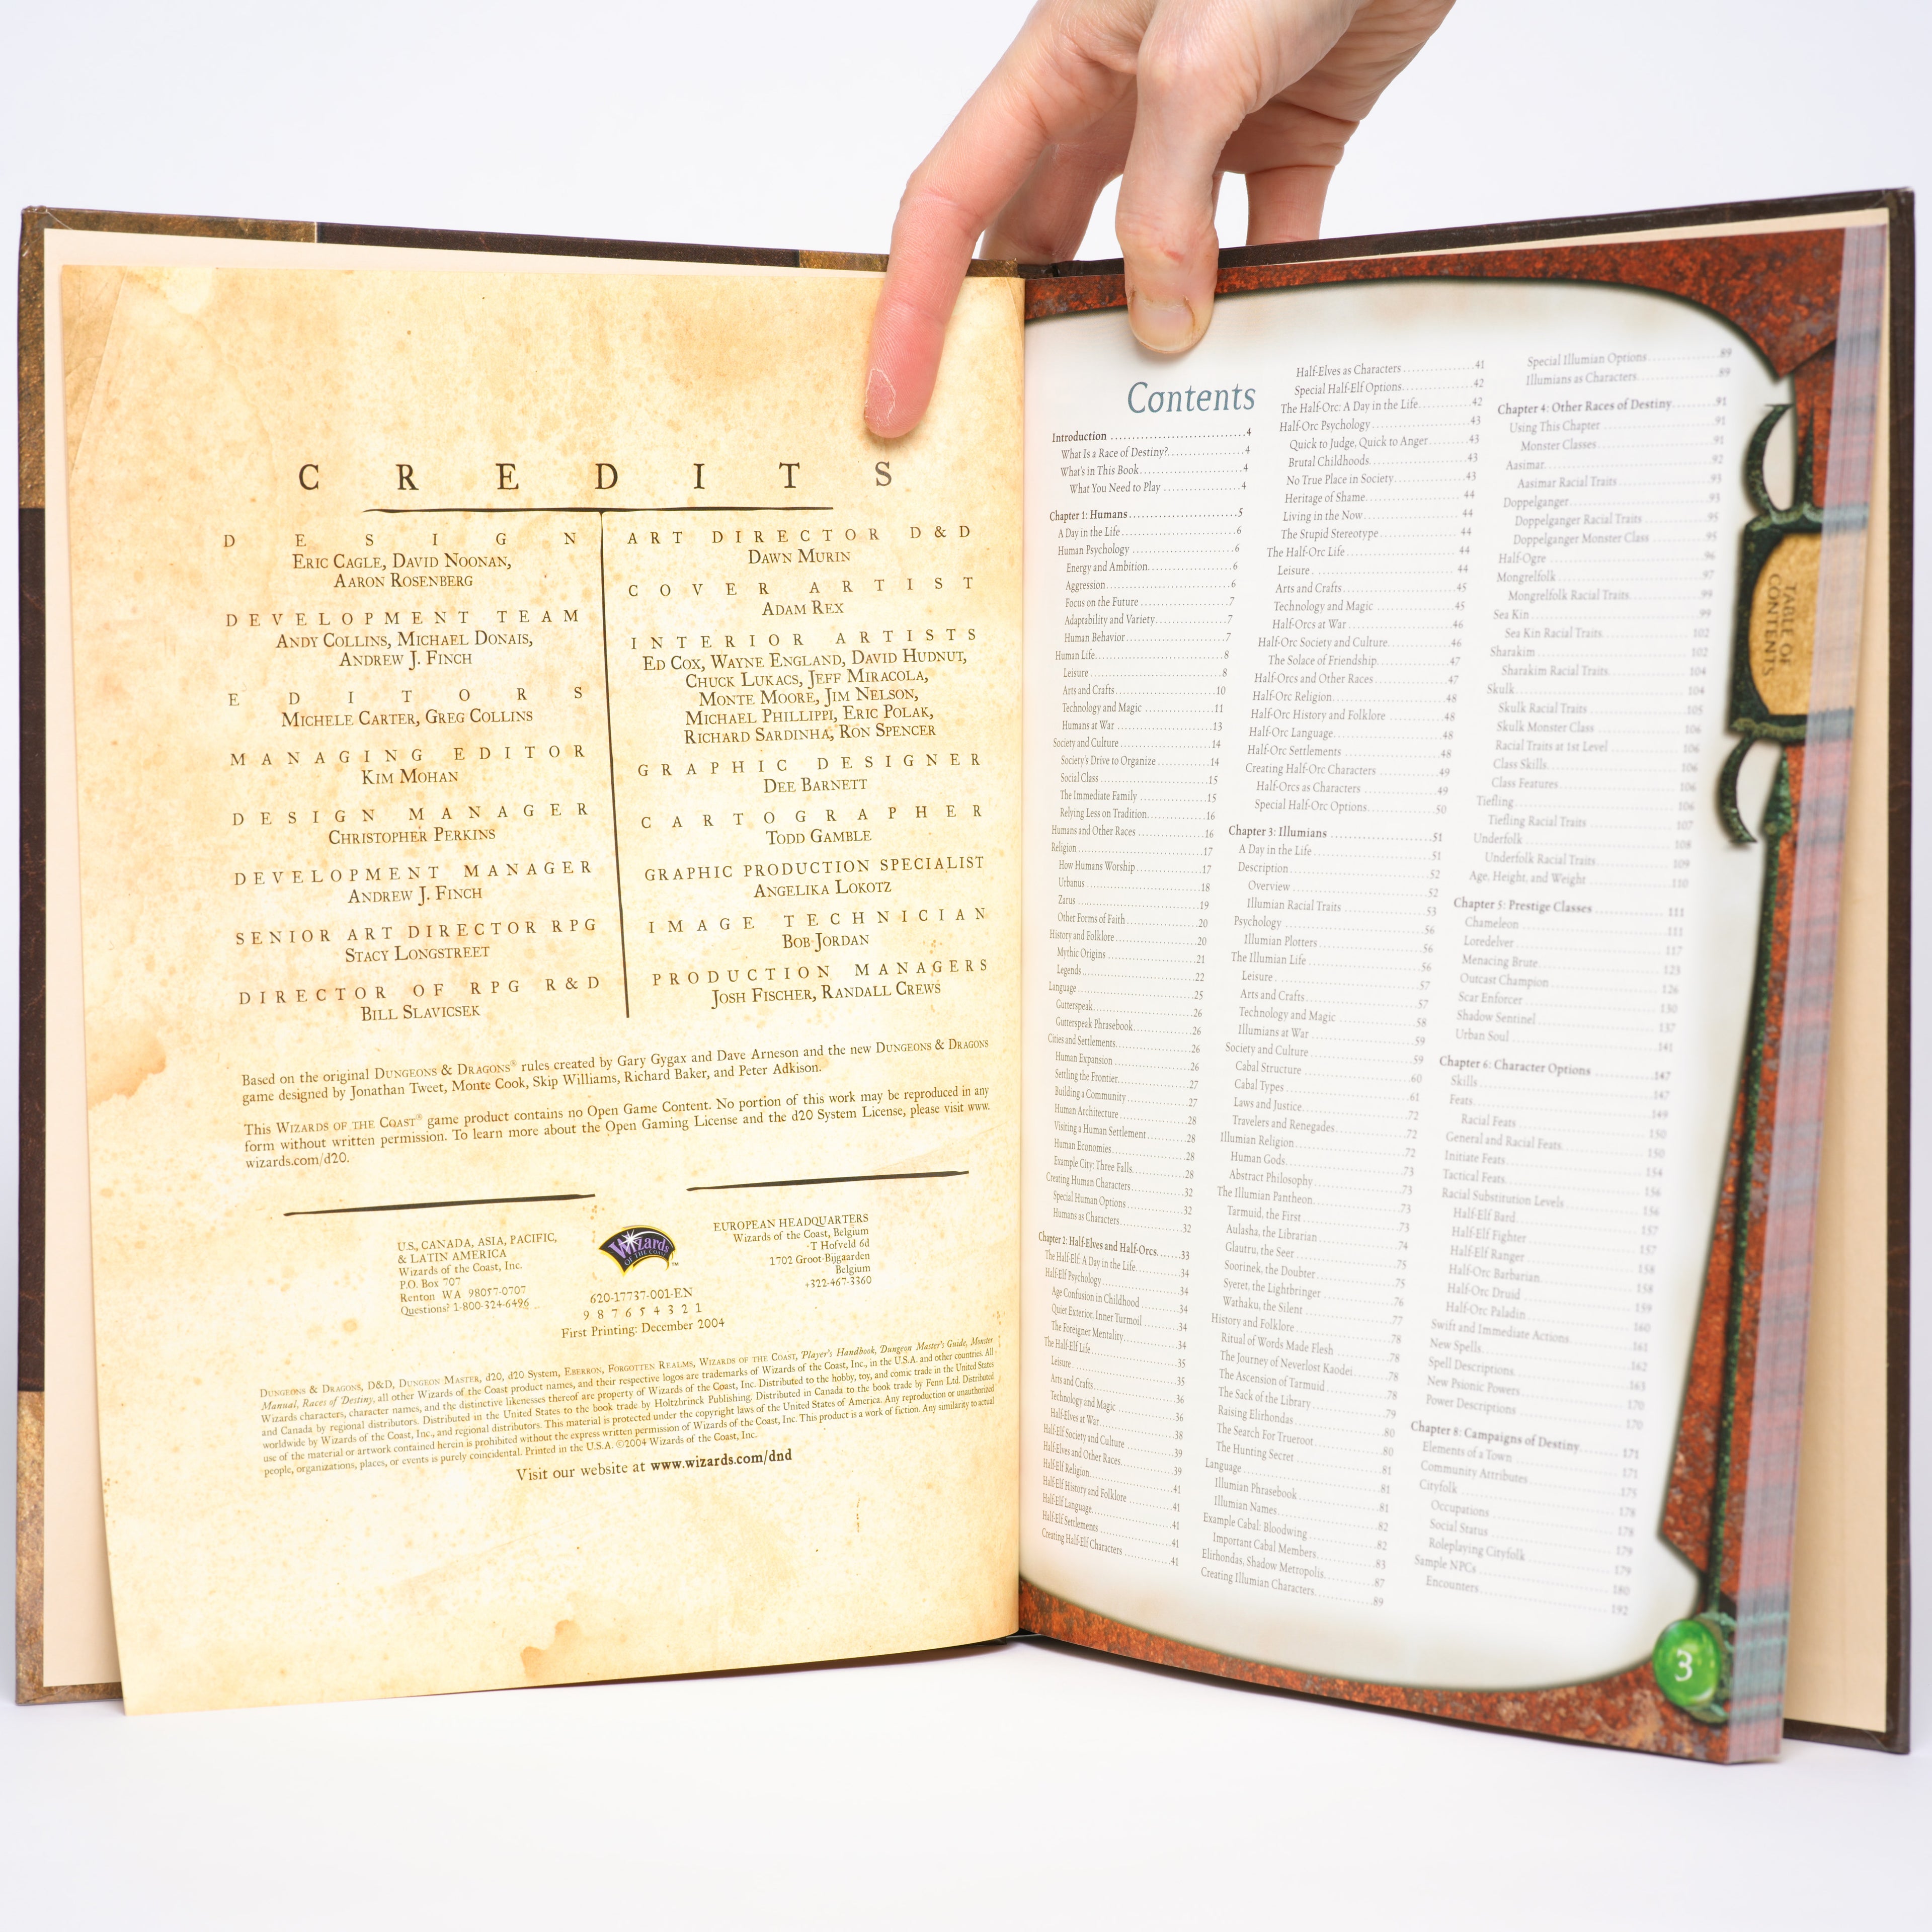 CREDITS
DESIGN
ERIC CAGLE, DAVID NOONAN,
AARON ROSENBERG
DEVELOPMENT TEAM
ANDY COLLINS, MICHAEL DONAIS,
ANDREW J. FINCH
EDITORS
MICHELE CARTER, GREG COLLINS
MANAGING EDITOR
KIM MOHAN
DESIGN MANAGER
CHRISTOPHER PERKINS
DEVELOPMENT MANAGER
ANDREW J. FINCH
SENIOR ART DIRECTOR RPG
STACY LONGSTREET
DIRECTOR OF RPG R&D
BILL SLAVICSEK
ART DIRECTOR D&D
DAWN MURIN
COVER ARTIST
ADAM REX
INTERIOR ARTISTS
ED COX, WAYNE ENGLAND, DAVID HUDNUT,
CHUCK LUKACS, JEFF MIRACOLA,
MONTE MOORE, JIM NELSON,
MICHAEL PHILLIPPI, ERIC POLAK,
RICHARD SARDINHA, RON SPENCER
GRAPHIC DESIGNER
DEE BARNETT
CARTOGRAPHER
TODD GAMBLE
GRAPHIC PRODUCTION SPECIALIST
ANGELIKA LOKOTZ
IMAGE TECHNICIAN
BOB JORDAN
PRODUCTION MANAGERS
JOSH FISCHER, RANDALL CREWS
Based on the original DUNGEONS & DRAGONS® rules created by Gary Gygax and Dave Arneson and the new DUNGEONS & DRAGONS
game designed by Jonathan Tweet, Monte Cook, Skip Williams, Richard Baker, and Peter Adkison.
This WIZARDS OF THE COAST® game product contains no Open Game Content. No portion of this work may be reproduced in any
form without written permission. To learn more about the Open Gaming License and the d20 System License, please visit www.
wizards.com/d20.
U.S., CANADA, ASIA, PACIFIC,
& LATIN AMERICA
Wizards of the Coast, Inc.
P.O. Box 707
Renton WA 98057-0707
Questions? 1-800-324-6496
Wizards
OF THE COAST™
620-17737-001-EN
9 8 7 6 5 4 3 2 1
First Printing: December 2004
EUROPEAN HEADQUARTERS
Wizards of the Coast, Belgium
'T Hofveld 6d
1702 Groot-Bijgaarden
Belgium
+322-467-3360
DUNGEONS & DRAGONS, D&D, DUNGEON MASTER, d20, d20 System, EBERRON, FORGOTTEN REALMS, WIZARDS OF THE COAST, Player's Handbook, Dungeon Master's Guide, Monster
Manual, Races of Destiny, all other Wizards of the Coast product names, and their respective logos are trademarks of Wizards of the Coast, Inc., in the U.S.A. and other countries. All
Wizards characters, character names, and the distinctive likenesses thereof are property of Wizards of the Coast, Inc. Distributed to the hobby, toy, and comic trade in the United States
and Canada by regional distributors. Distributed in the United States to the book trade by Holtzbrinck Publishing. Distributed in Canada to the book trade by Fenn Ltd. Distributed
worldwide by Wizards of the Coast, Inc., and regional distributors. This material is protected under the copyright laws of the United States of America. Any reproduction or unauthorized
use of the material or artwork contained herein is prohibited without the express written permission of Wizards of the Coast, Inc. This product is a work of fiction. Any similarity to actual
people, organizations, places, or events is purely coincidental. Printed in the U.S.A. ©2004 Wizards of the Coast, Inc.
Visit our website at www.wizards.com/dnd
Contents
Introduction 4
What Is a Race of Destiny? 4
What's in This Book 4
What You Need to Play 4
Chapter 1: Humans 5
A Day in the Life 6
Human Psychology 6
Energy and Ambition 6
Aggression 6
Focus on the Future 7
Adaptability and Variety 7
Human Behavior 7
Human Life 8
Leisure 8
Arts and Crafts 10
Technology and Magic 11
Humans at War 13
Society and Culture 14
Society's Drive to Organize 14
Social Class 15
The Immediate Family 15
Relying Less on Tradition 16
Humans and Other Races 16
Religion 17
How Humans Worship 17
Urbanus 18
Zarus 19
Other Forms of Faith 20
History and Folklore 20
Mythic Origins 21
Legends 22
Language 25
Gutterspeak 26
Gutterspeak Phrasebook 26
Cities and Settlements 26
Human Expansion 26
Settling the Frontier 27
Building a Community 27
Human Architecture 28
Visiting a Human Settlement 28
Human Economies 28
Example City: Three Falls 28
Creating Human Characters 32
Special Human Options 32
Humans as Characters 32
Chapter 2: Half-Elves and Half-Orcs 33
The Half-Elf: A Day in the Life 34
Half-Elf Psychology 34
Age Confusion in Childhood 34
Quiet Exterior, Inner Turmoil 34
The Foreigner Mentality 34
The Half-Elf Life 35
Leisure 35
Arts and Crafts 36
Technology and Magic 36
Half-Elves at War 38
Half-Elf Society and Culture 39
Half-Elves and Other Races 39
Half-Elf Religion 41
Half-Elf History and Folklore 41
Half-Elf Language 41
Half-Elf Settlements 41
Creating Half-Elf Characters 41
Half-Elves as Characters 41
Special Half-Elf Options 42
The Half-Orc: A Day in the Life 42
Half-Orc Psychology 43
Quick to Judge, Quick to Anger 43
Brutal Childhoods 43
No True Place in Society 43
Heritage of Shame 44
Living in the Now 44
The Stupid Stereotype 44
The Half-Orc Life 44
Leisure 44
Arts and Crafts 45
Technology and Magic 45
Half-Orcs at War 46
Half-Orc Society and Culture 46
The Solace of Friendship 47
Half-Orcs and Other Races 47
Half-Orc Religion 48
Half-Orc History and Folklore 48
Half-Orc Language 48
Half-Orc Settlements 48
Creating Half-Orc Characters 49
Half-Orcs as Characters 49
Special Half-Orc Options 50
Chapter 3: Illumians 51
A Day in the Life 51
Description 52
Overview 52
Illumian Racial Traits 53
Psychology 56
Illumian Plotters 56
The Illumian Life 56
Leisure 57
Arts and Crafts 57
Technology and Magic 58
Illumians at War 59
Society and Culture 59
Cabal Structure 60
Cabal Types 61
Laws and Justice 72
Travelers and Renegades 72
Illumian Religion 72
Human Gods 73
Abstract Philosophy 73
The Illumian Pantheon 73
Tarmuid, the First 73
Aulasha, the Librarian 74
Glautru, the Seer 75
Soorinek, the Doubter 75
Syeret, the Lightbringer 76
Wathaku, the Silent 77
History and Folklore 78
Ritual of Words Made Flesh 78
The Journey of Neverlost Kaodei 78
The Ascension of Tarmuid 78
The Sack of the Library 79
Raising Elirhondas 80
The Search For Trueroot 80
The Hunting Secret 81
Language 81
Illumian Phrasebook 81
Illumian Names 82
Example Cabal: Bloodwing 82
Important Cabal Members 83
Elirhondas, Shadow Metropolis 87
Creating Illumian Characters 89
Special Illumian Options 89
Illumians as Characters 89
Chapter 4: Other Races of Destiny 91
Using This Chapter 91
Monster Classes 91
Aasimar 92
Aasimar Racial Traits 93
Doppelganger 93
Doppelganger Racial Traits 95
Doppelganger Monster Class 95
Half-Ogre 96
Mongrelfolk 97
Mongrelfolk Racial Traits 99
Sea Kin 99
Sea Kin Racial Traits 102
Sharakim 102
Sharakim Racial Traits 104
Skulk 104
Skulk Racial Traits 105
Skulk Monster Class 106
Racial Traits at 1st Level 106
Class Skills 106
Class Features 106
Tiefling 106
Tiefling Racial Traits 107
Underfolk 108
Underfolk Racial Traits 109
Age, Height, and Weight 110
Chapter 5: Prestige Classes 111
Chameleon 111
Loredelver 117
Menacing Brute 123
Outcast Champion 126
Scar Enforcer 130
Shadow Sentinel 137
Urban Soul 141
Chapter 6: Character Options 147
Skills 147
Feats 149
Racial Feats 150
General and Racial Feats 150
Initiate Feats 154
Tactical Feats 156
Racial Substitution Levels 156
Half-Elf Bard 157
Half-Elf Fighter 157
Half-Elf Ranger 158
Half-Orc Barbarian 158
Half-Orc Druid 159
Half-Orc Paladin 160
Swift and Immediate Actions 161
New Spells 162
Spell Descriptions 163
New Psionic Powers 170
Power Descriptions 170
Chapter 8: Campaigns of Destiny 171
Elements of a Town 171
Community Attributes 175
Cityfolk 178
Occupations 178
Social Status 179
Roleplaying Cityfolk 179
Sample NPCs 180
Encounters 192
TABLE OF
CONTENTS
3